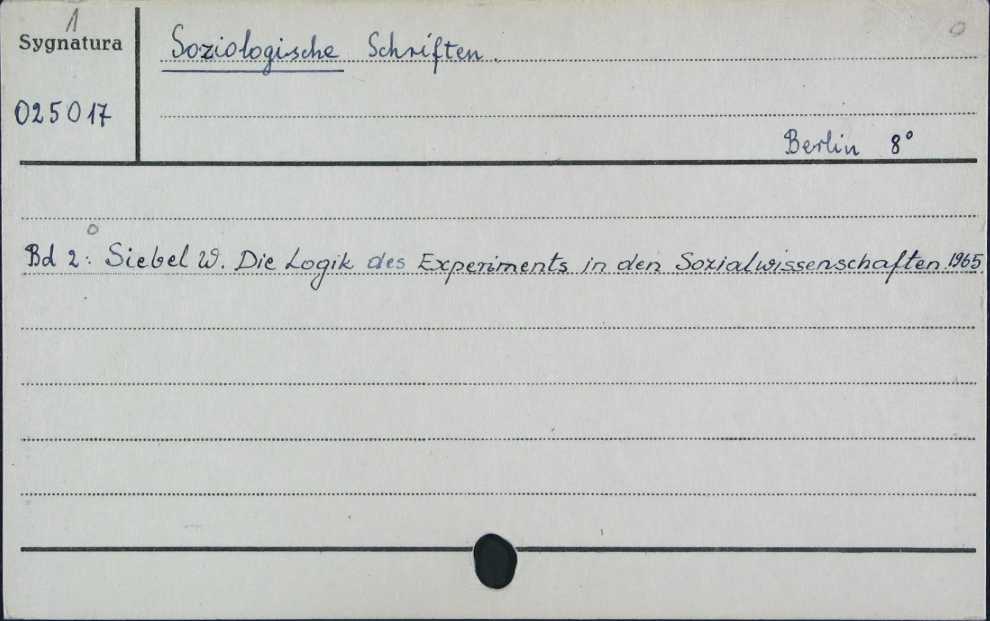 1
Sygnatura
Soziologische Schriften.
025017
Berlin 8°
Bd 2: Siebel W. Die Logik des Experiments in den Sozialwissenschaften. 1965